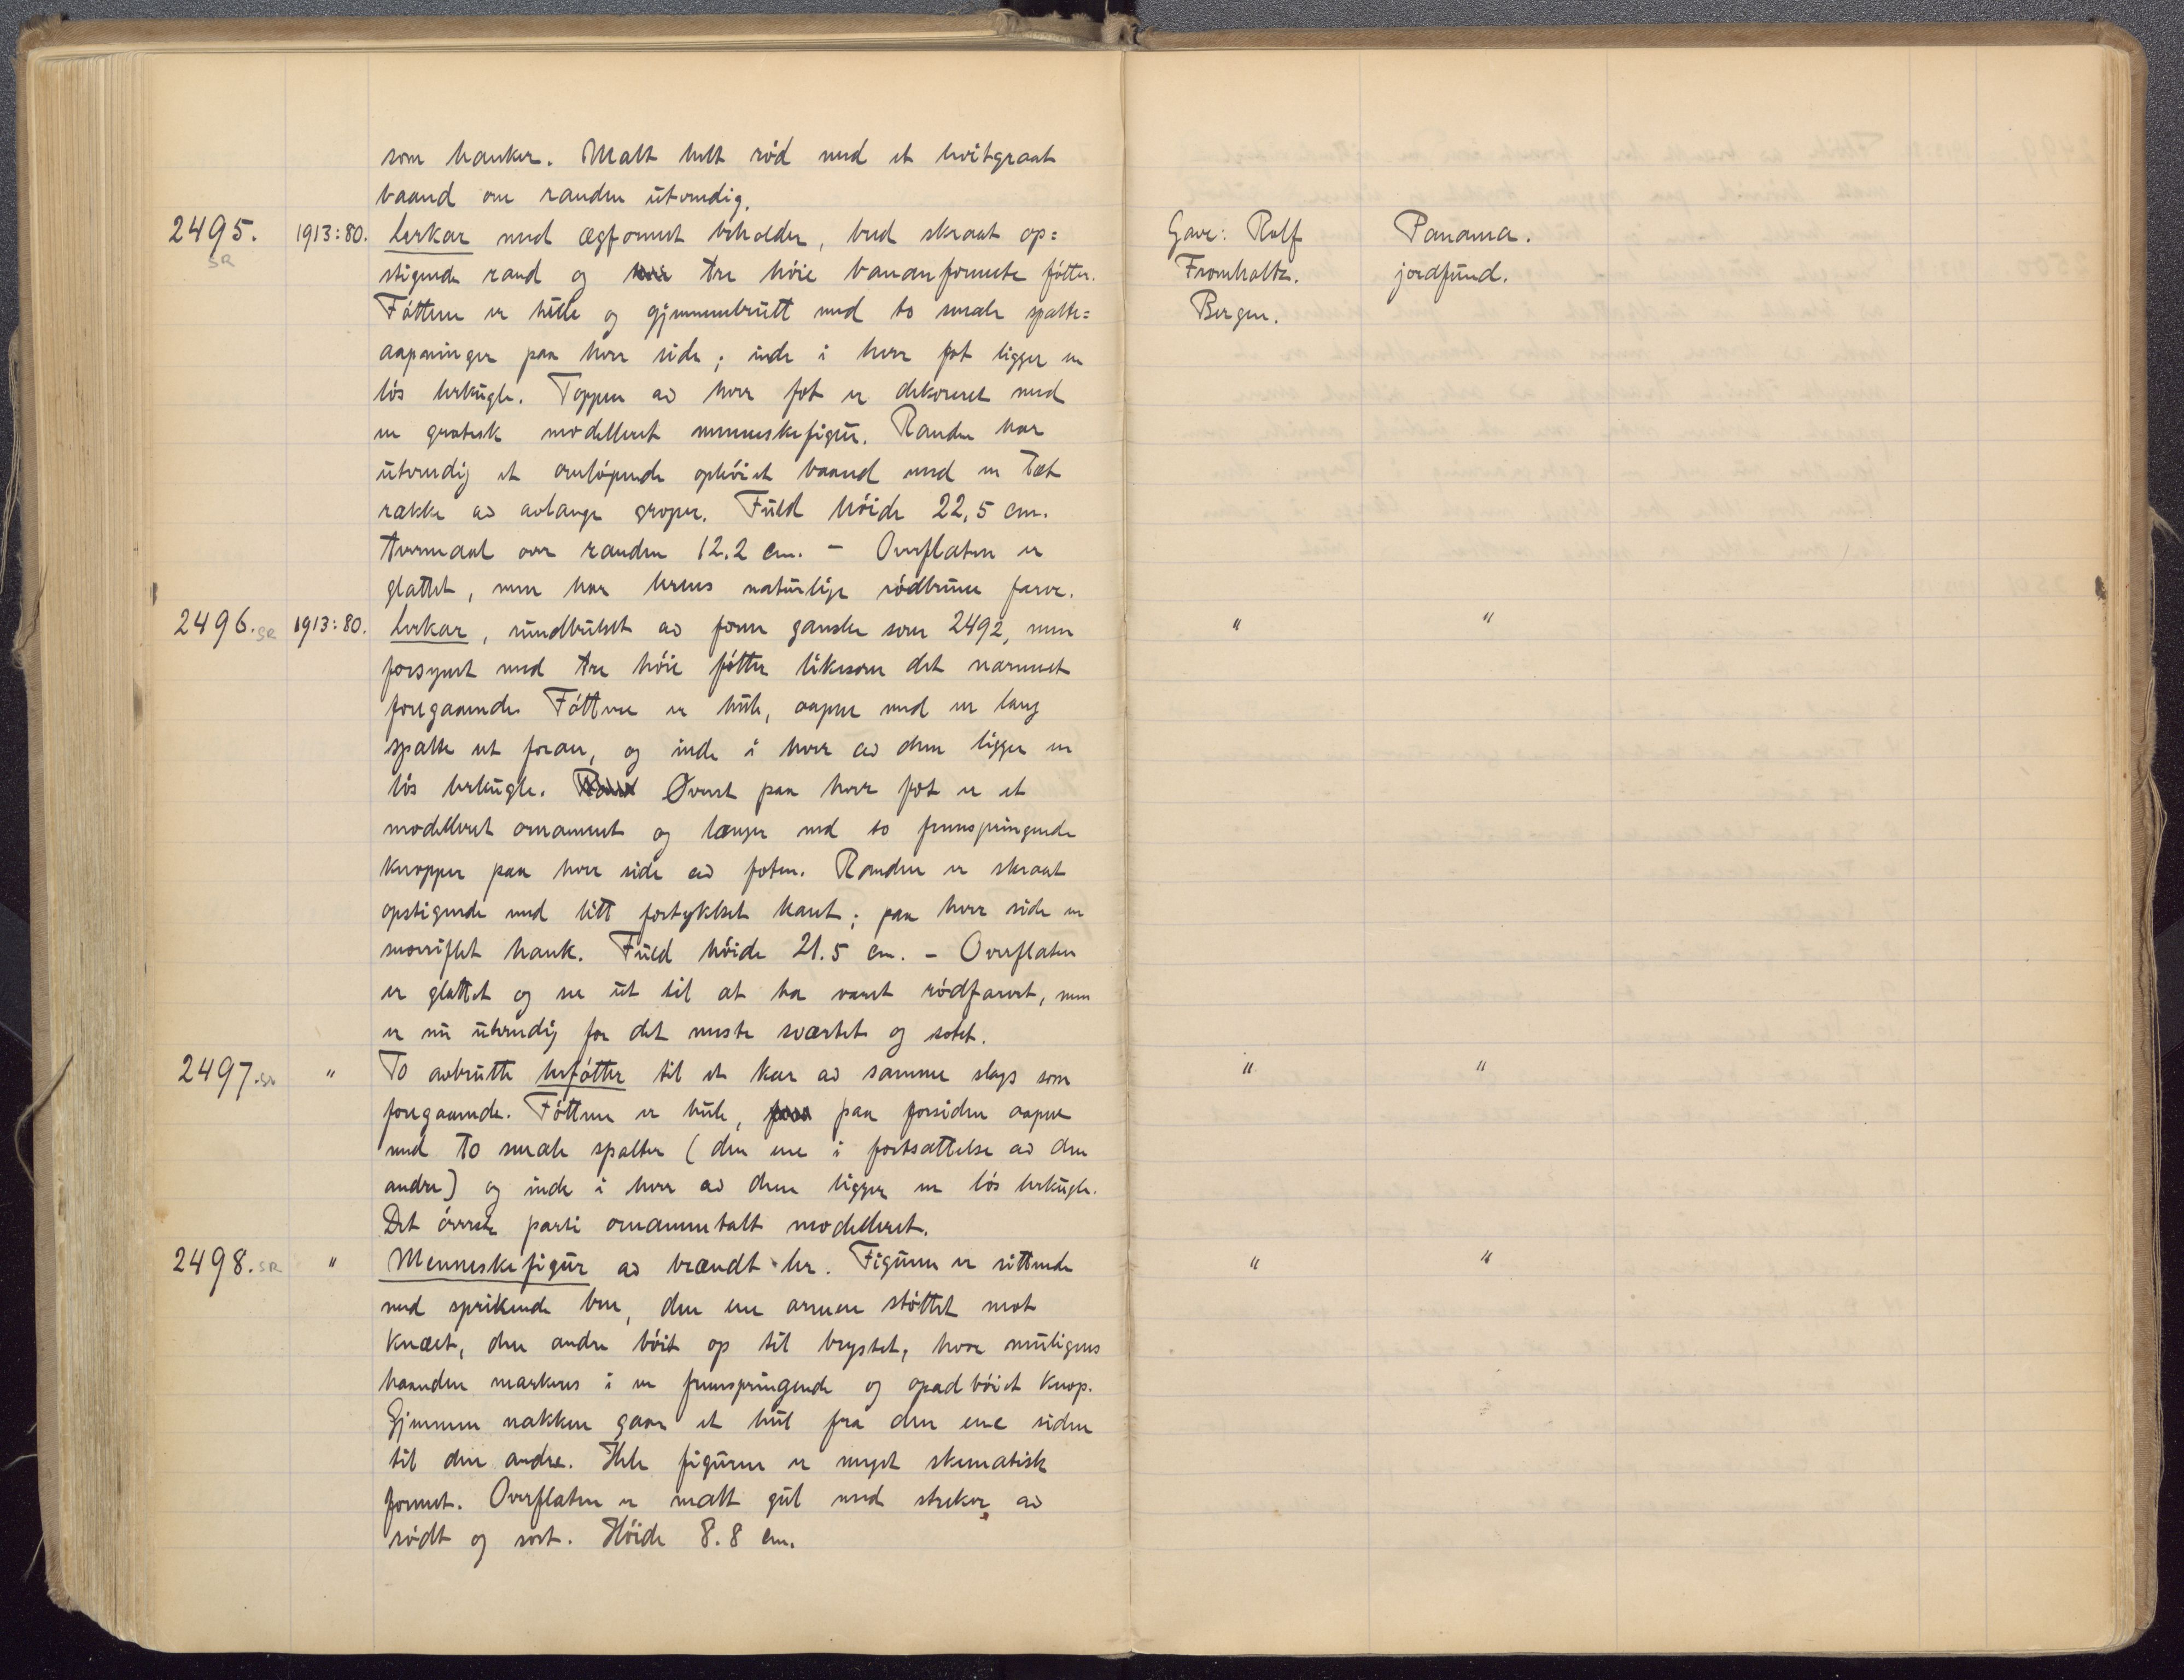 som hanker. Malt helt rød med et hvitgraat
baand om randen utvendig.
2495. SA 1913:80. Lerkar med ægformet beholder, bred skraat op=
stigende rand og tre høie bananformete føtter.
Føttene er hule og gjennembrutt med to smale spalte=
aapninger paa hver side; inde i hver fot ligger en
løs lerkugle. Toppen av hver fot er dekoreret med
en grotesk modelleret menneskefigur. Randen har
utvendig et omløpende ophøiet baand med en tæt
række av avlange groper. Fuld høide 22,5 cm.
Tvermaal over randen 12.2 cm. - Overflaten er
glattet, men har lerets naturlige rødbrune farve.
Gave: Rolf
Fromholtz.
Bergen.
Panama.
jordfund.
2496. SA 1913:80. Lerkar, rundbuket av form ganske som 2492, men
forsynet med tre høie føtter likesom det nærmest
foregaaende. Føttene er hule, aapne med en lang
spalte ut foran, og inde i hver av dem ligger en
løs lerkugle. Øverst paa hver fot er et
modelleret ornament og længer ned to fremspringende
knopper paa hver side av foten. Randen er skraat
opstigende med litt fortykket kant; paa hver side en
snorriflet hank. Fuld høide 21.5 cm. - Overflaten
er glattet og ser ut til at ha været rødfarvet, men
er nu utvendig for det meste sværtet og sotet.
" "
2497. SA " To avbrutte lerføtter til et kar av samme slags som
foregaaende. Føttene er hule, paa forsiden aapne
med to smale spalter (den ene i fortsættelse av den
andre) og inde i hver av dem ligger en løs lerkugle.
Det øverste parti ornamentalt modelleret.
" "
2498. SA " Menneskefigur av brændt ler. Figuren er sittende
med sprikende ben, den ene armen støttet mot
knæet, den andre bøit op til brystet, hvor muligens
haanden markeres i en fremspringende og opad bøiet knop.
Gjennem nakken gaar et hul fra den ene siden
til den andre. Hele figuren er meget skematisk
formet. Overflaten er malt gul med streker av
rødt og sort. Høide 8.8 cm.
" "